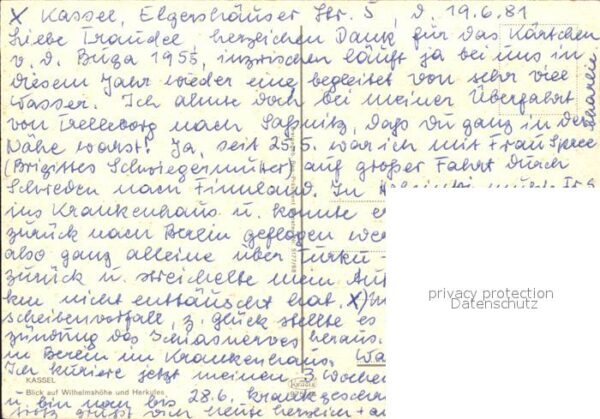 X Kassel, Elgershäuser Str. 5, d. 19.6.81
Liebe Traudel, herzlichen Dank für das Kärtchen
v. d. Buga 1955, inzwischen läuft ja bei uns in
diesem Jahr wieder eine, begleitet von sehr viel
Wasser. Ich ahnte doch bei meiner Überfahrt
von Trelleborg nach Saßnitz, daß Du ganz in der
Nähe warst! Ja, seit 25.5. war ich mit Frau Spree
(Brigittes Schwiegermutter) auf großer Fahrt durch
Schweden nach Finnland. In
ins Krankenhaus u. konnte
zurück nach Berlin geflogen
also ganz alleine über Turku -
zurück u. streichelte mein
ken nicht enttäuscht hat. X)
scheibenvorfall, z. Glück stellte es
zündung des Ischiasnerves heraus.
in Berlin im Krankenhaus.
Ich kuriere jetzt meinen 3 Wochen
u. bin noch bis 28.6. krankgeschr
grüßt Dich heute herzlich
KASSEL
Blick auf Wilhelmshöhe und Herkules
privacy protection
Datenschutz